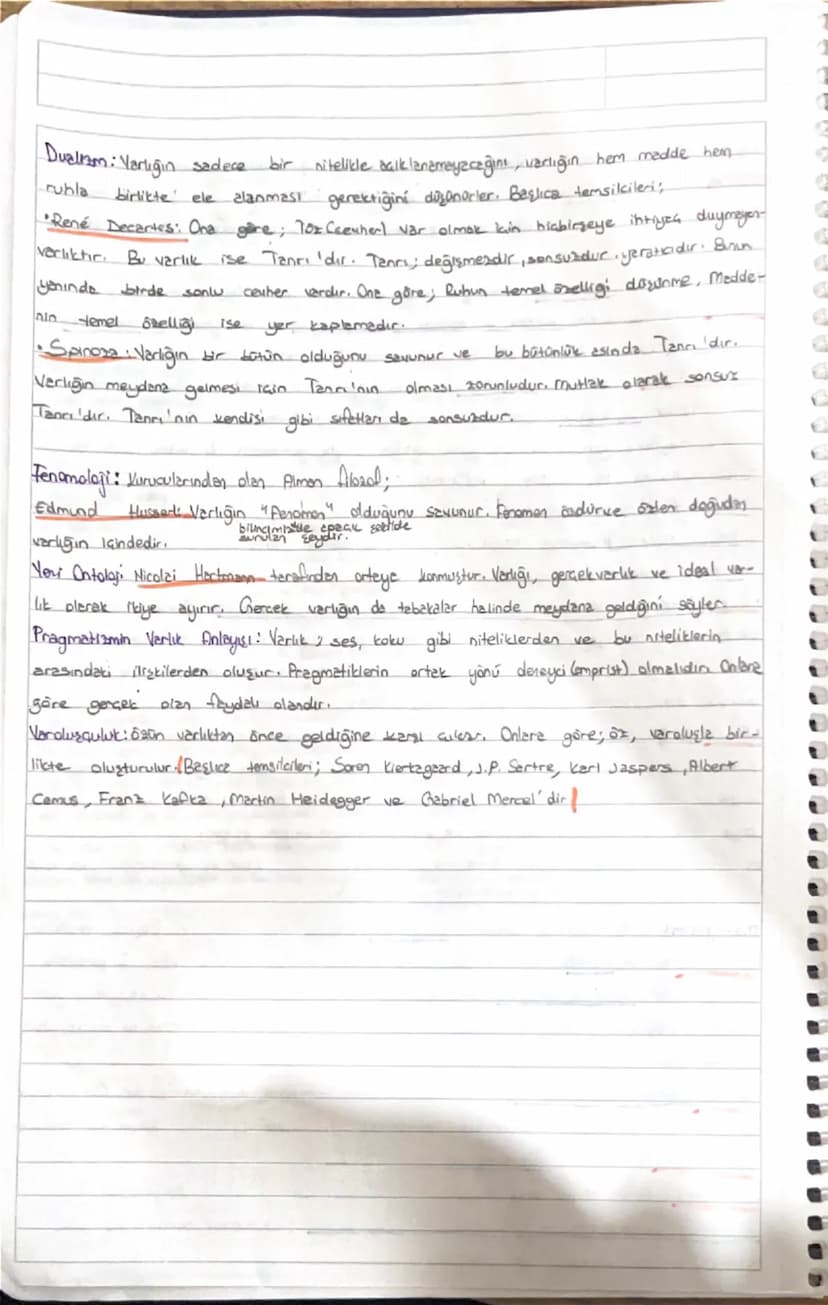 Dualizm: Varlığın sadece bir nitelikle açıklanamayacağını, varlığın hem madde hem
ruhla birlikte ele alanması gerektiğini düşünürler. Başlıca temsilcileri;
•René Decartes: Ona göre; Töz (cevher) var olmak için hiçbirşeye ihtiyaç duymayan
varlıktır. Bu varlık ise Tanrı'dır. Tanrı; değişmezdir, sonsuzdur, yaratıcıdır. Bunun
yanında birde sonlu cevher vardır. Ona göre; Ruhun temel özelliği düşünme, Madde-
nin temel özelliği ise yer kaplamadır.
• Spinoza: Varlığın bir bütün olduğunu savunur ve bu bütünlük aslında Tanrı'dır.
Varlığın meydana gelmesi için Tanrı'nın olması zorunludur. Mutlak olarak sonsuz
Tanrı'dır. Tanrı'nın kendisi gibi sıfatları da sonsuzdur.
Fenomoloji: Kurucularından olan Alman filozof;
Edmund Husserl: Varlığın "Fenomen" olduğunu savunur. Fenomen özdür ve özler doğudan
bilincimizde apaçık şekilde
varlığın içindedir. sunulan şeydir.
Yeni Ontoloji Nicolai Hartmann tarafından ortaya konmuştur. Varlığı, gerçek varlık ve ideal var-
lık olarak ikiye ayırır. Gerçek varlığın da tabakalar halinde meydana geldiğini söyler.
Pragmatizmin Varlık Anlayışı: Varlık; ses, koku gibi niteliklerden ve bu niteliklerin
arasındaki ilişkilerden oluşur. Pragmatiklerin ortak yönü deneyci (emprist) olmalıdır. Onlara
göre gerçek olan faydalı olandır.
Varoluşçuluk: özün varlıktan önce geldiğine karşı çıkar. Onlara göre; öz, varoluşla bir-
likte oluşturulur. (Başlıca temsilcileri; Soren Kierkegaard, J.P. Sartre, Karl Jaspers, Albert
Camus, Franz Kafka, Martin Heidegger ve Gabriel Marcel'dir)